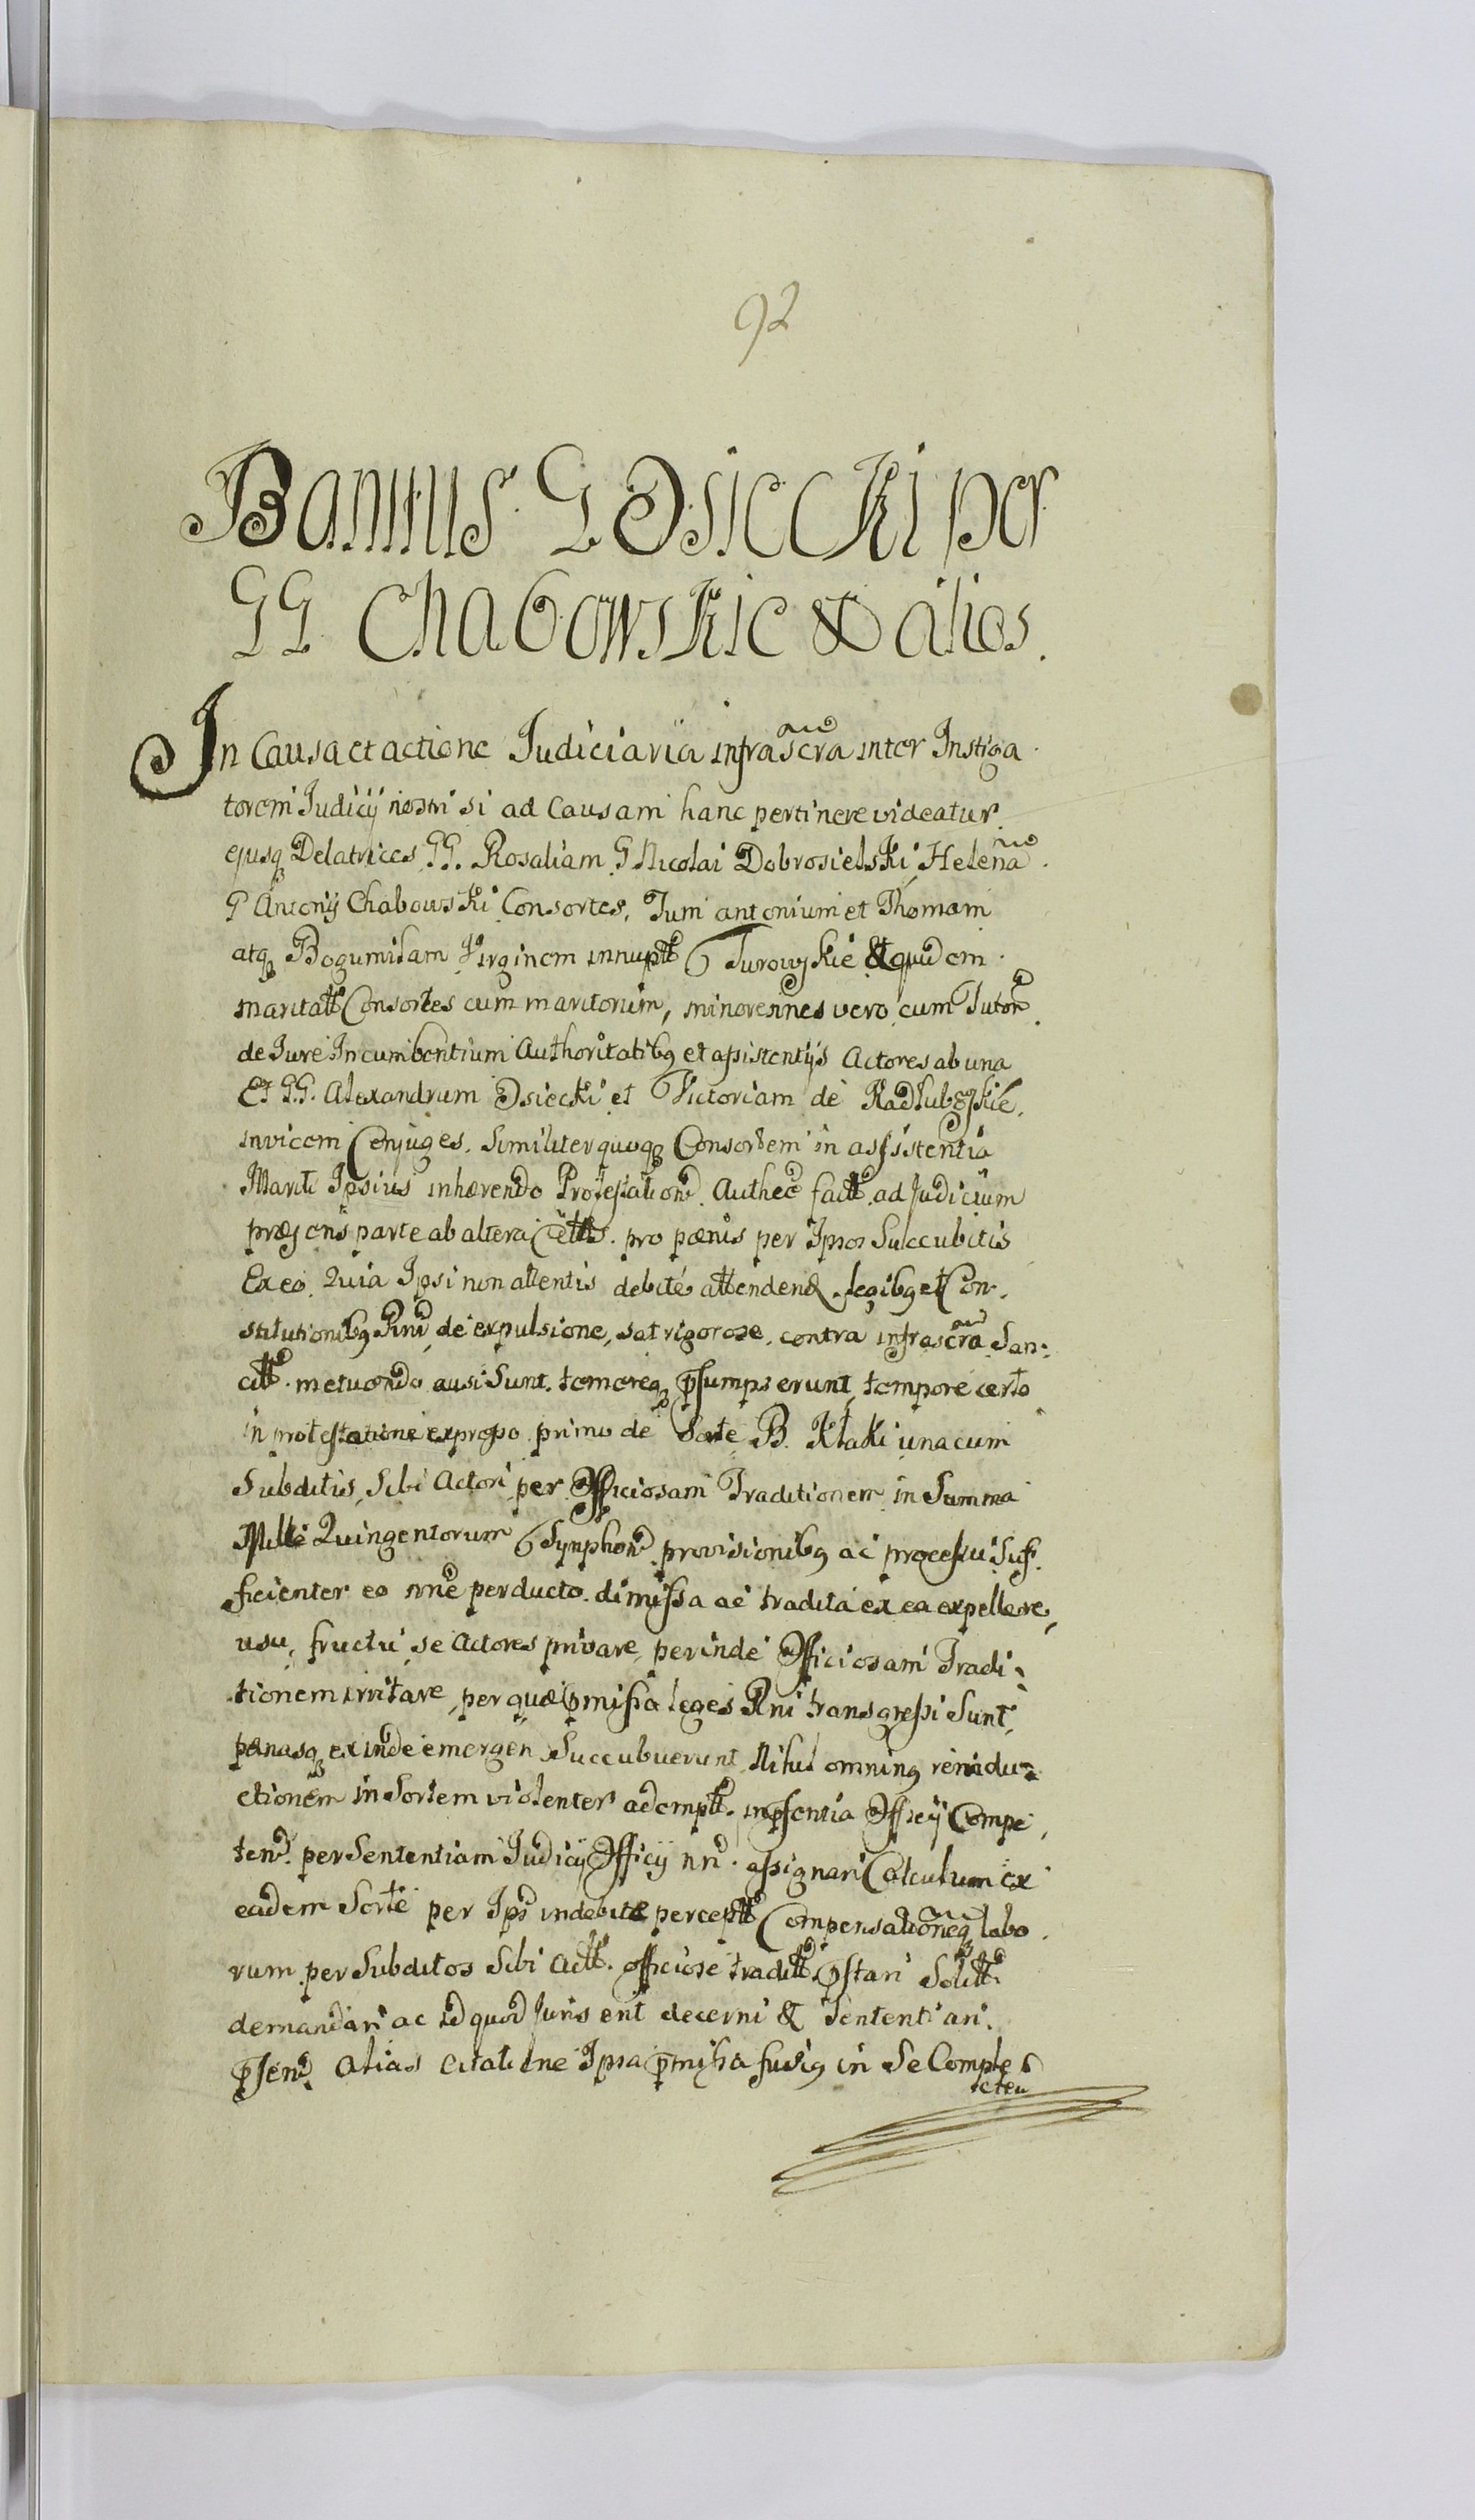 92
Banitus G Osiecki per
GG Chabowskie & alios.
In Causa et actione Judiciaria infrascra inter Instiga
torem Judicij nostri si ad Causam hanc pertinere videatur
ejusq Delatrices GG. Rosaliam G Nicolai Dobrosielski, Helena
G Antonij Chabowski Consortes, Tum antonium et Thomam
atq Bogumilam Virginem innuptt Turowskie & quidem
maritatt Consortes cum maritorum, minorennes vero cum Tutor
de Jure Incumbentium Authoritatibq et assistentijs Actores ab una
Et GG. Alexandrum Osiecki et Victoriam de Radłubskie
invicem Conjuges. Similiter quoq Consortem in assistentia
Mariti Ipsius inhærendo Protestation. Authec factt. ad Judicium
præsens parte ab altera Citts. pro pænis per Ipsos Succubitis
Ex eo, Quia Ipsi non attentis debite attenden. legibq et Con-
stitutionibq Rni de expulsione, sat rigorose, contra infrascra San-
citt. metuendo ausi Sunt. temereq psumpserunt, tempore certo
in protestatione expresso primo de Sorte B. Kłaki una cum
Subditis, Sibi Actori per Officiosam Traditionem in Summa
Mille Quingentorum Symphon provisionibq ac processu Suf-
ficienter eo nne perducto. dimissa ac tradita ex ea expellere,
usu, fructu, se Actores privare, perinde Officiosam Tradi-
tionem irritare, per quæ pmissa leges Rni transgressi Sunt,
pænasq exinde emergen Succubuerunt Nihil ominq reindu-
ctionem in Sortem violenter ademptt. in psentia Officij Compe
ten. per Sententiam Judicij Officij nri. assignari Calculum ex
eadem Sorte per Ips indebite perceptt Compensationeq labo
rum per Subditos Sibi Actt. officiose traditt. pstari Solitt.
demandari ac id quod Juris erit decerni & Sententiari.
psen. alias citatione Ipsa pmissa fusiq in Se Comple
cten